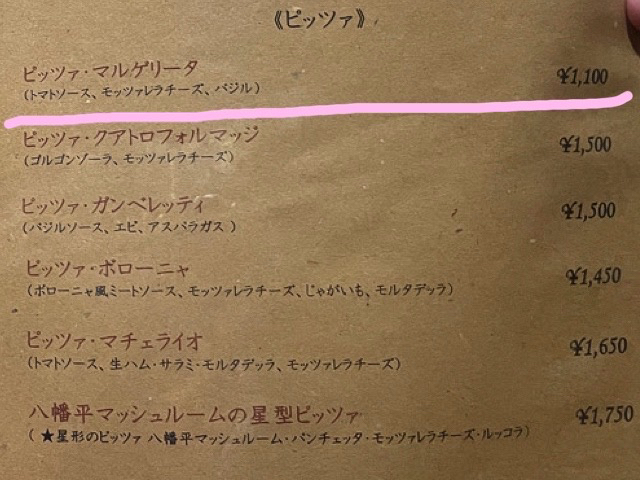 《ピッツァ》
ピッツァ・マルゲリータ ¥1,100
(トマトソース、モッツァレラチーズ、バジル)
ピッツァ・クアトロフォルマッジ ¥1,500
(ゴルゴンゾーラ、モッツァレラチーズ)
ピッツァ・ガンベレッティ ¥1,500
(バジルソース、エビ、アスパラガス )
ピッツァ・ボローニャ ¥1,450
(ボローニャ風ミートソース、モッツァレラチーズ、じゃがいも、モルタデッラ)
ピッツァ・マチェライオ ¥1,650
(トマトソース、生ハム・サラミ・モルタデッラ、モッツァレラチーズ)
八幡平マッシュルームの星型ピッツァ ¥1,750
( ★星形のピッツァ 八幡平マッシュルーム・パンチェッタ・モッツァレラチーズ・ルッコラ)